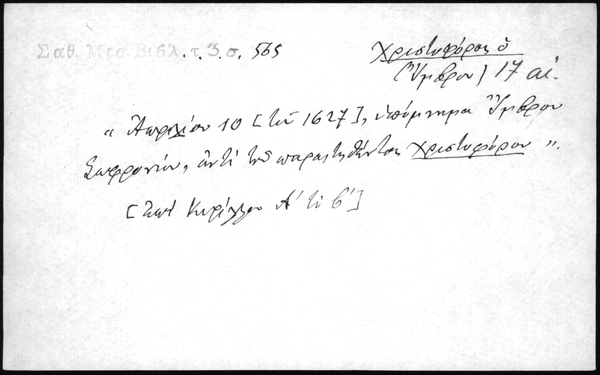 Σαθ. Μεσ. Βιβλ. τ. 3. σ. 565
Χριστοφόρος ὁ
(Ἴμβρου) 17 αἰ.
" Ἀπριλίου 10 [τοῦ 1627], ὑπόμνημα Ἴμβρου
Σωφρονίου, ἀντὶ τοῦ παραιτηθέντος Χριστοφόρου ".
[ἐπὶ Κυρίλλου Α' τὸ β']